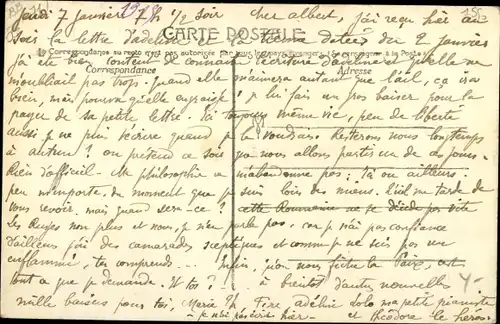 Jeudi 7 Janvier 7h 1/2 soir   Cher Albert, j'ai reçu hier au
soir la lettre d'adeline datée du 2 Janvier
CARTE POSTALE
La Correspondance au recto n'est pas autorisée par tous les pays étrangers à la Poste
j'ai été bien content de connaître l'écriture d'adeline et qu'elle ne
Correspondance
Adresse
m'oubliait pas trop. Quand elle m'aimera autant que l'ail, ça ira
bien, mais pourvu qu'elle engraisse ! je lui fais un gros baiser pour la
pager de sa petite lettre. Ici toujours même vie, peu de liberté
aussi je ne puis écrire quand je le voudrais. Resterons nous longtemps
à autun ? on prétend ce soir que nous allons partir un de ces jours.
Rien d'officiel. Ma philosophie ne m'abandonne pas : là ou ailleurs
peu m'importe, du moment que je suis loin des miens. Qu'il me tarde de
vous revoir. mais quand sera-ce ? cette Roumanie ne se décide pas vite
Les Russes non plus et nous, je n'en parle pas, car je n'ai pas confiance
d'ailleurs j'ai des camarades sceptiques et comme je ne suis pas un
enflammé, tu comprends ... Enfin, qu'on nous fiche la Paix, c'est
tout a que je demande. Et toi ! ... à bientôt d'autres nouvelles
mille baisers pour toi, Marie Th. Fifre, adeline solo ma petite pianiste
je n'ai pas écrit hier - et Théodore le héros.